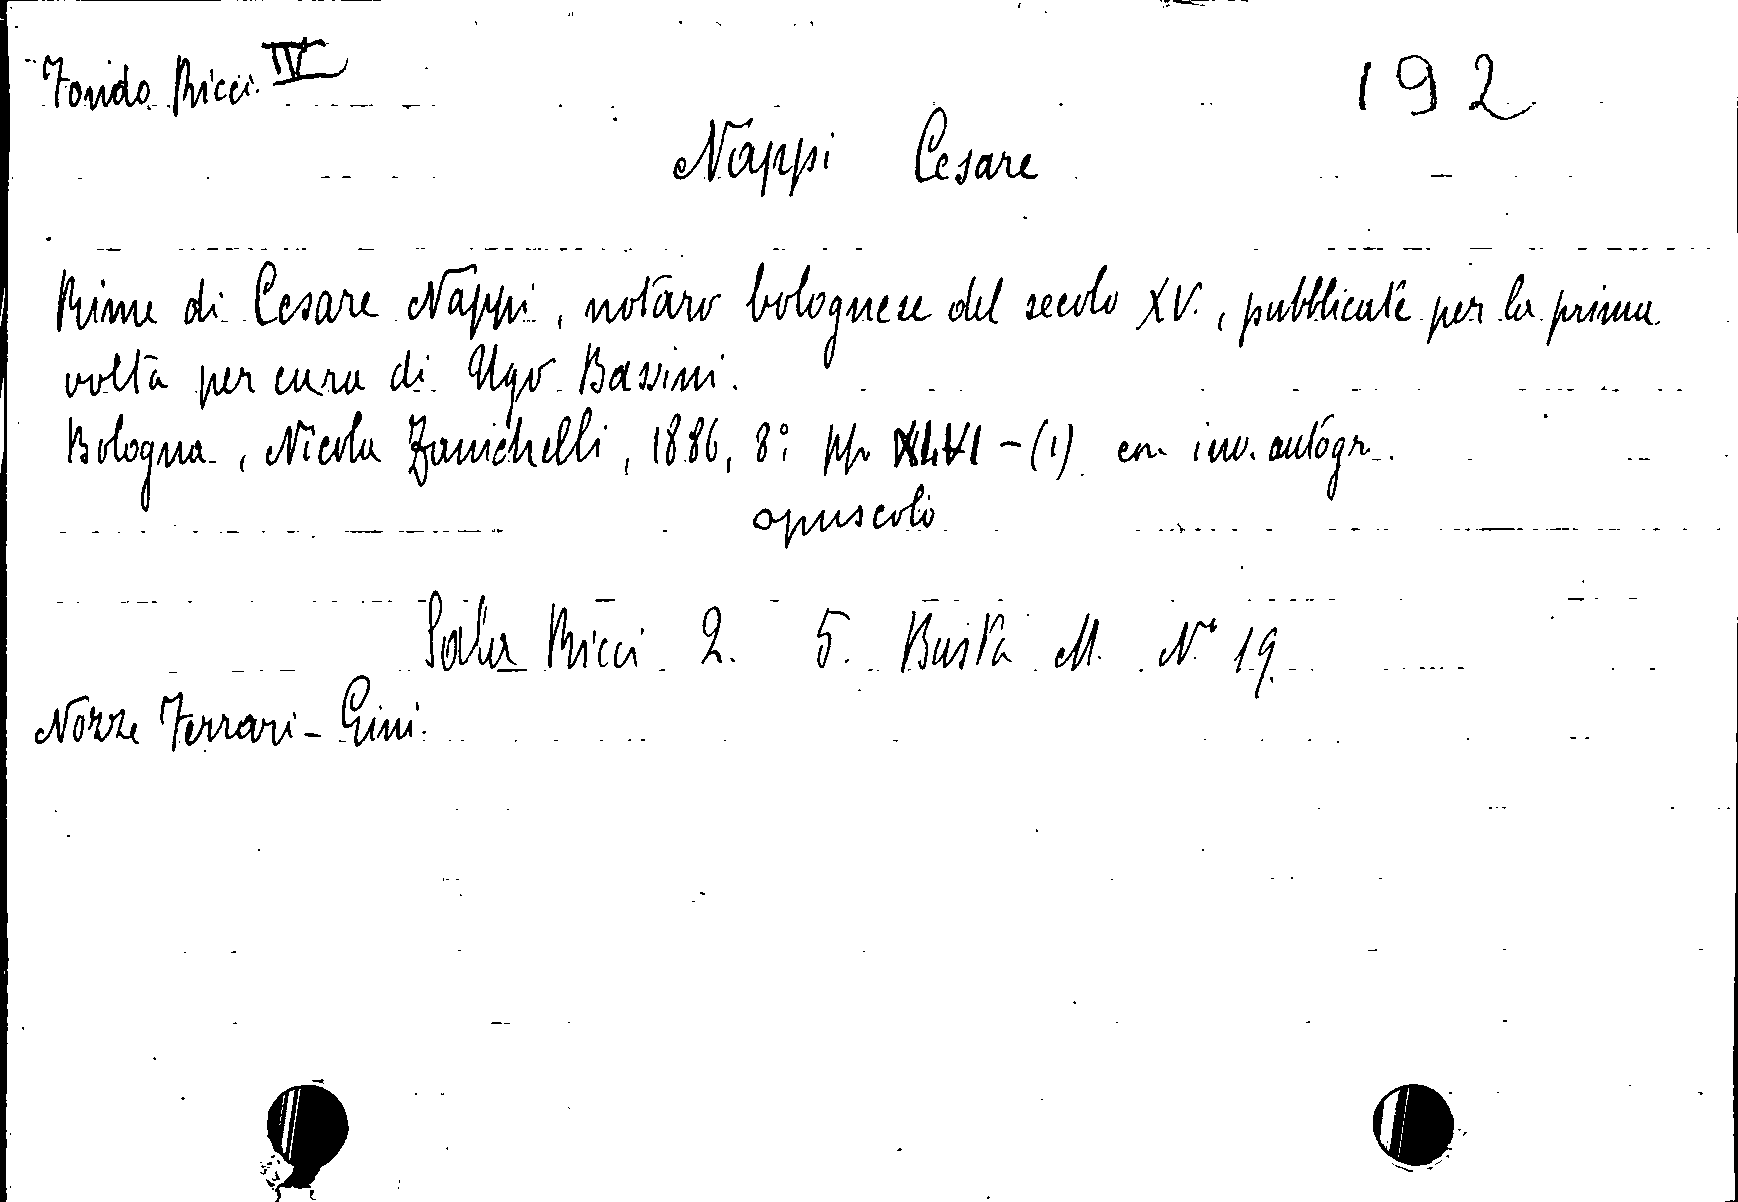 Fondo Ricci IV
192
Nappi Cesare
Rime di Cesare Nappi, notaro bolognese del secolo XV., pubblicate per la prima
volta per cura di Ugo Bassini.
Bologna, Nicola Zanichelli, 1886, 8° pp XLVI - (1) con inv. autogr.
opuscolo
Sala Ricci 2. 5. Busta M. N° 19.
Nozze Ferrari - Gini.